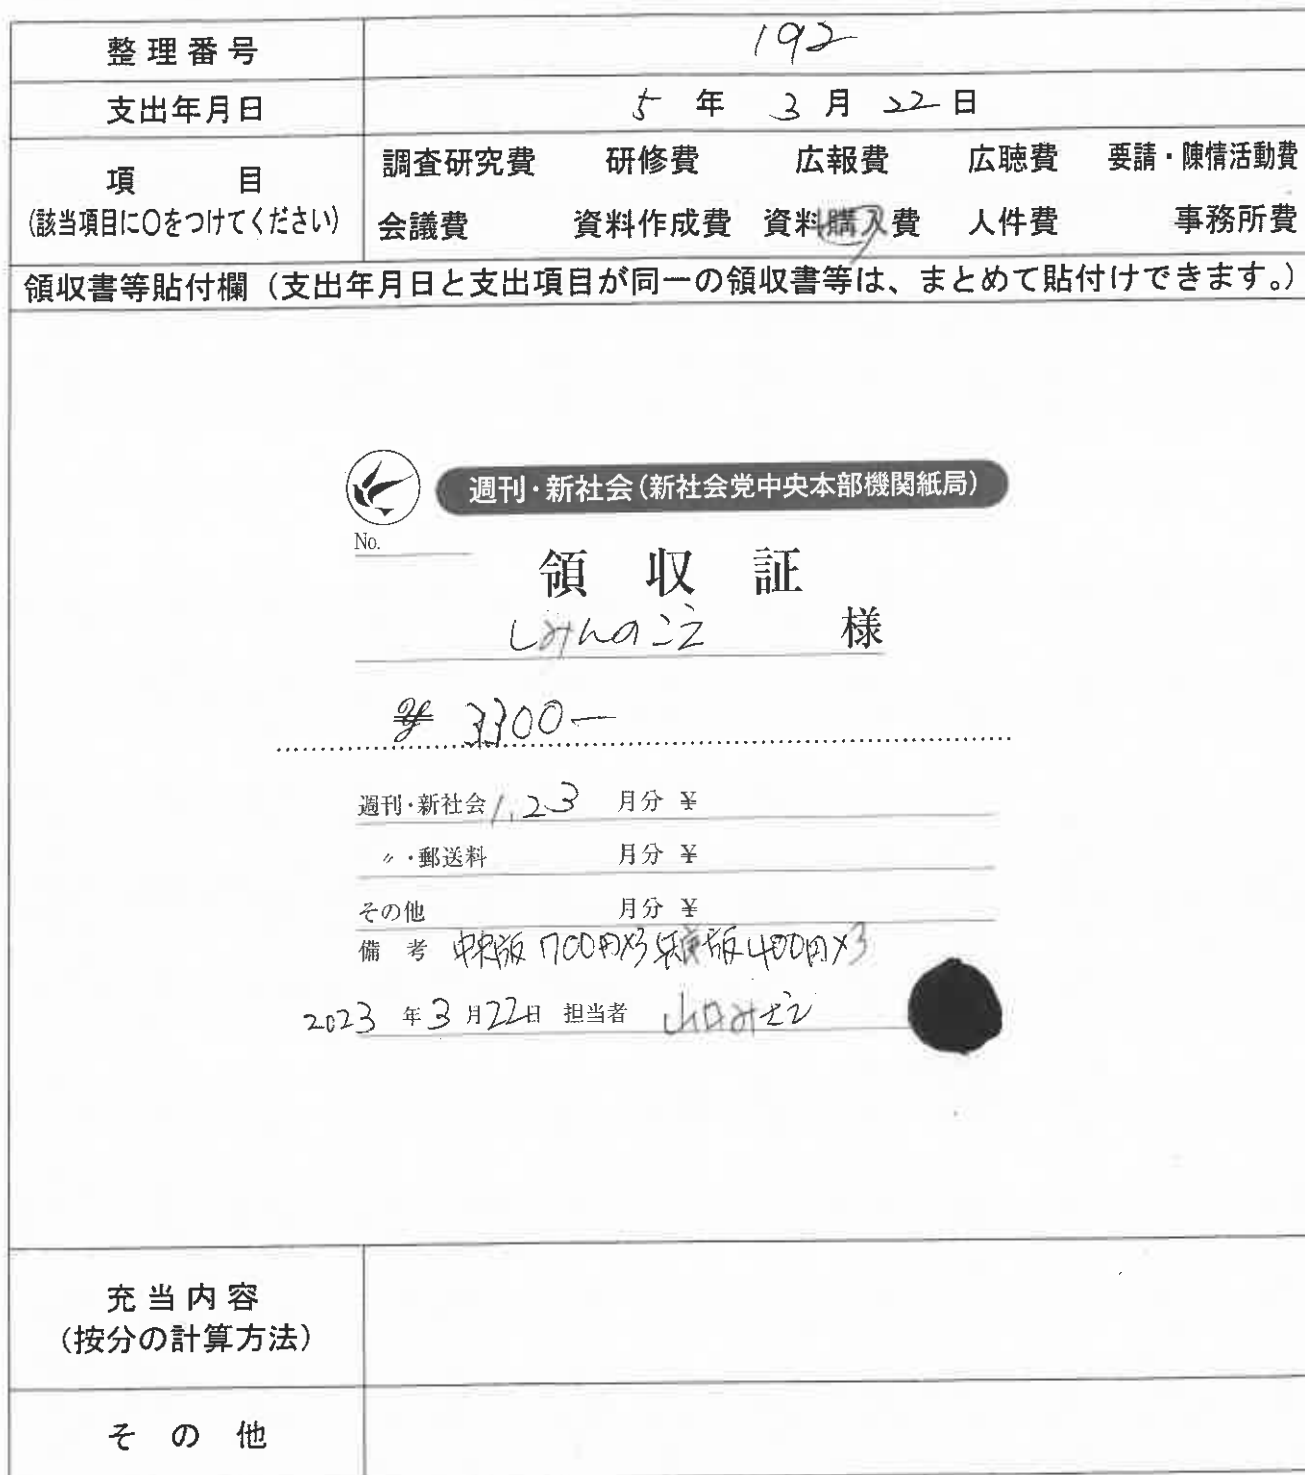 整理番号 192
支出年月日 5 年 3 月 22 日
項 目
(該当項目に〇をつけてください)
調査研究費 研修費 広報費 広聴費 要請・陳情活動費
会議費 資料作成費 資料購入費 人件費 事務所費
領収書等貼付欄(支出年月日と支出項目が同一の領収書等は、まとめて貼付けできます。)
週刊・新社会(新社会党中央本部機関紙局)
No.
領収証
しみんのこえ 様
¥ 3300-
週刊・新社会 1,2 3 月分 ¥
〃・郵送料 月分 ¥
その他 月分 ¥
備考 中央版 700円×3 兵庫版 400円×3
2023 年 3 月 22 日 担当者 山口みさえ
充当内容
(按分の計算方法)
その他